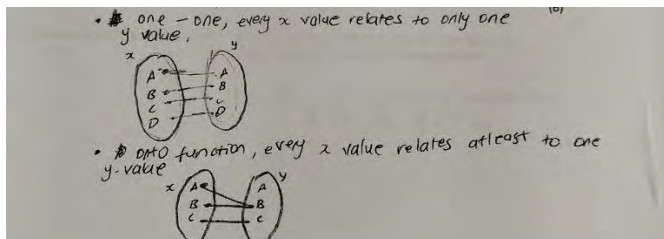 • one - one, every x value relates to only one
y value.
x y
A A
B B
C C
D D
• onto function, every x value relates atleast to one
y-value
x y
A A
B B
C C